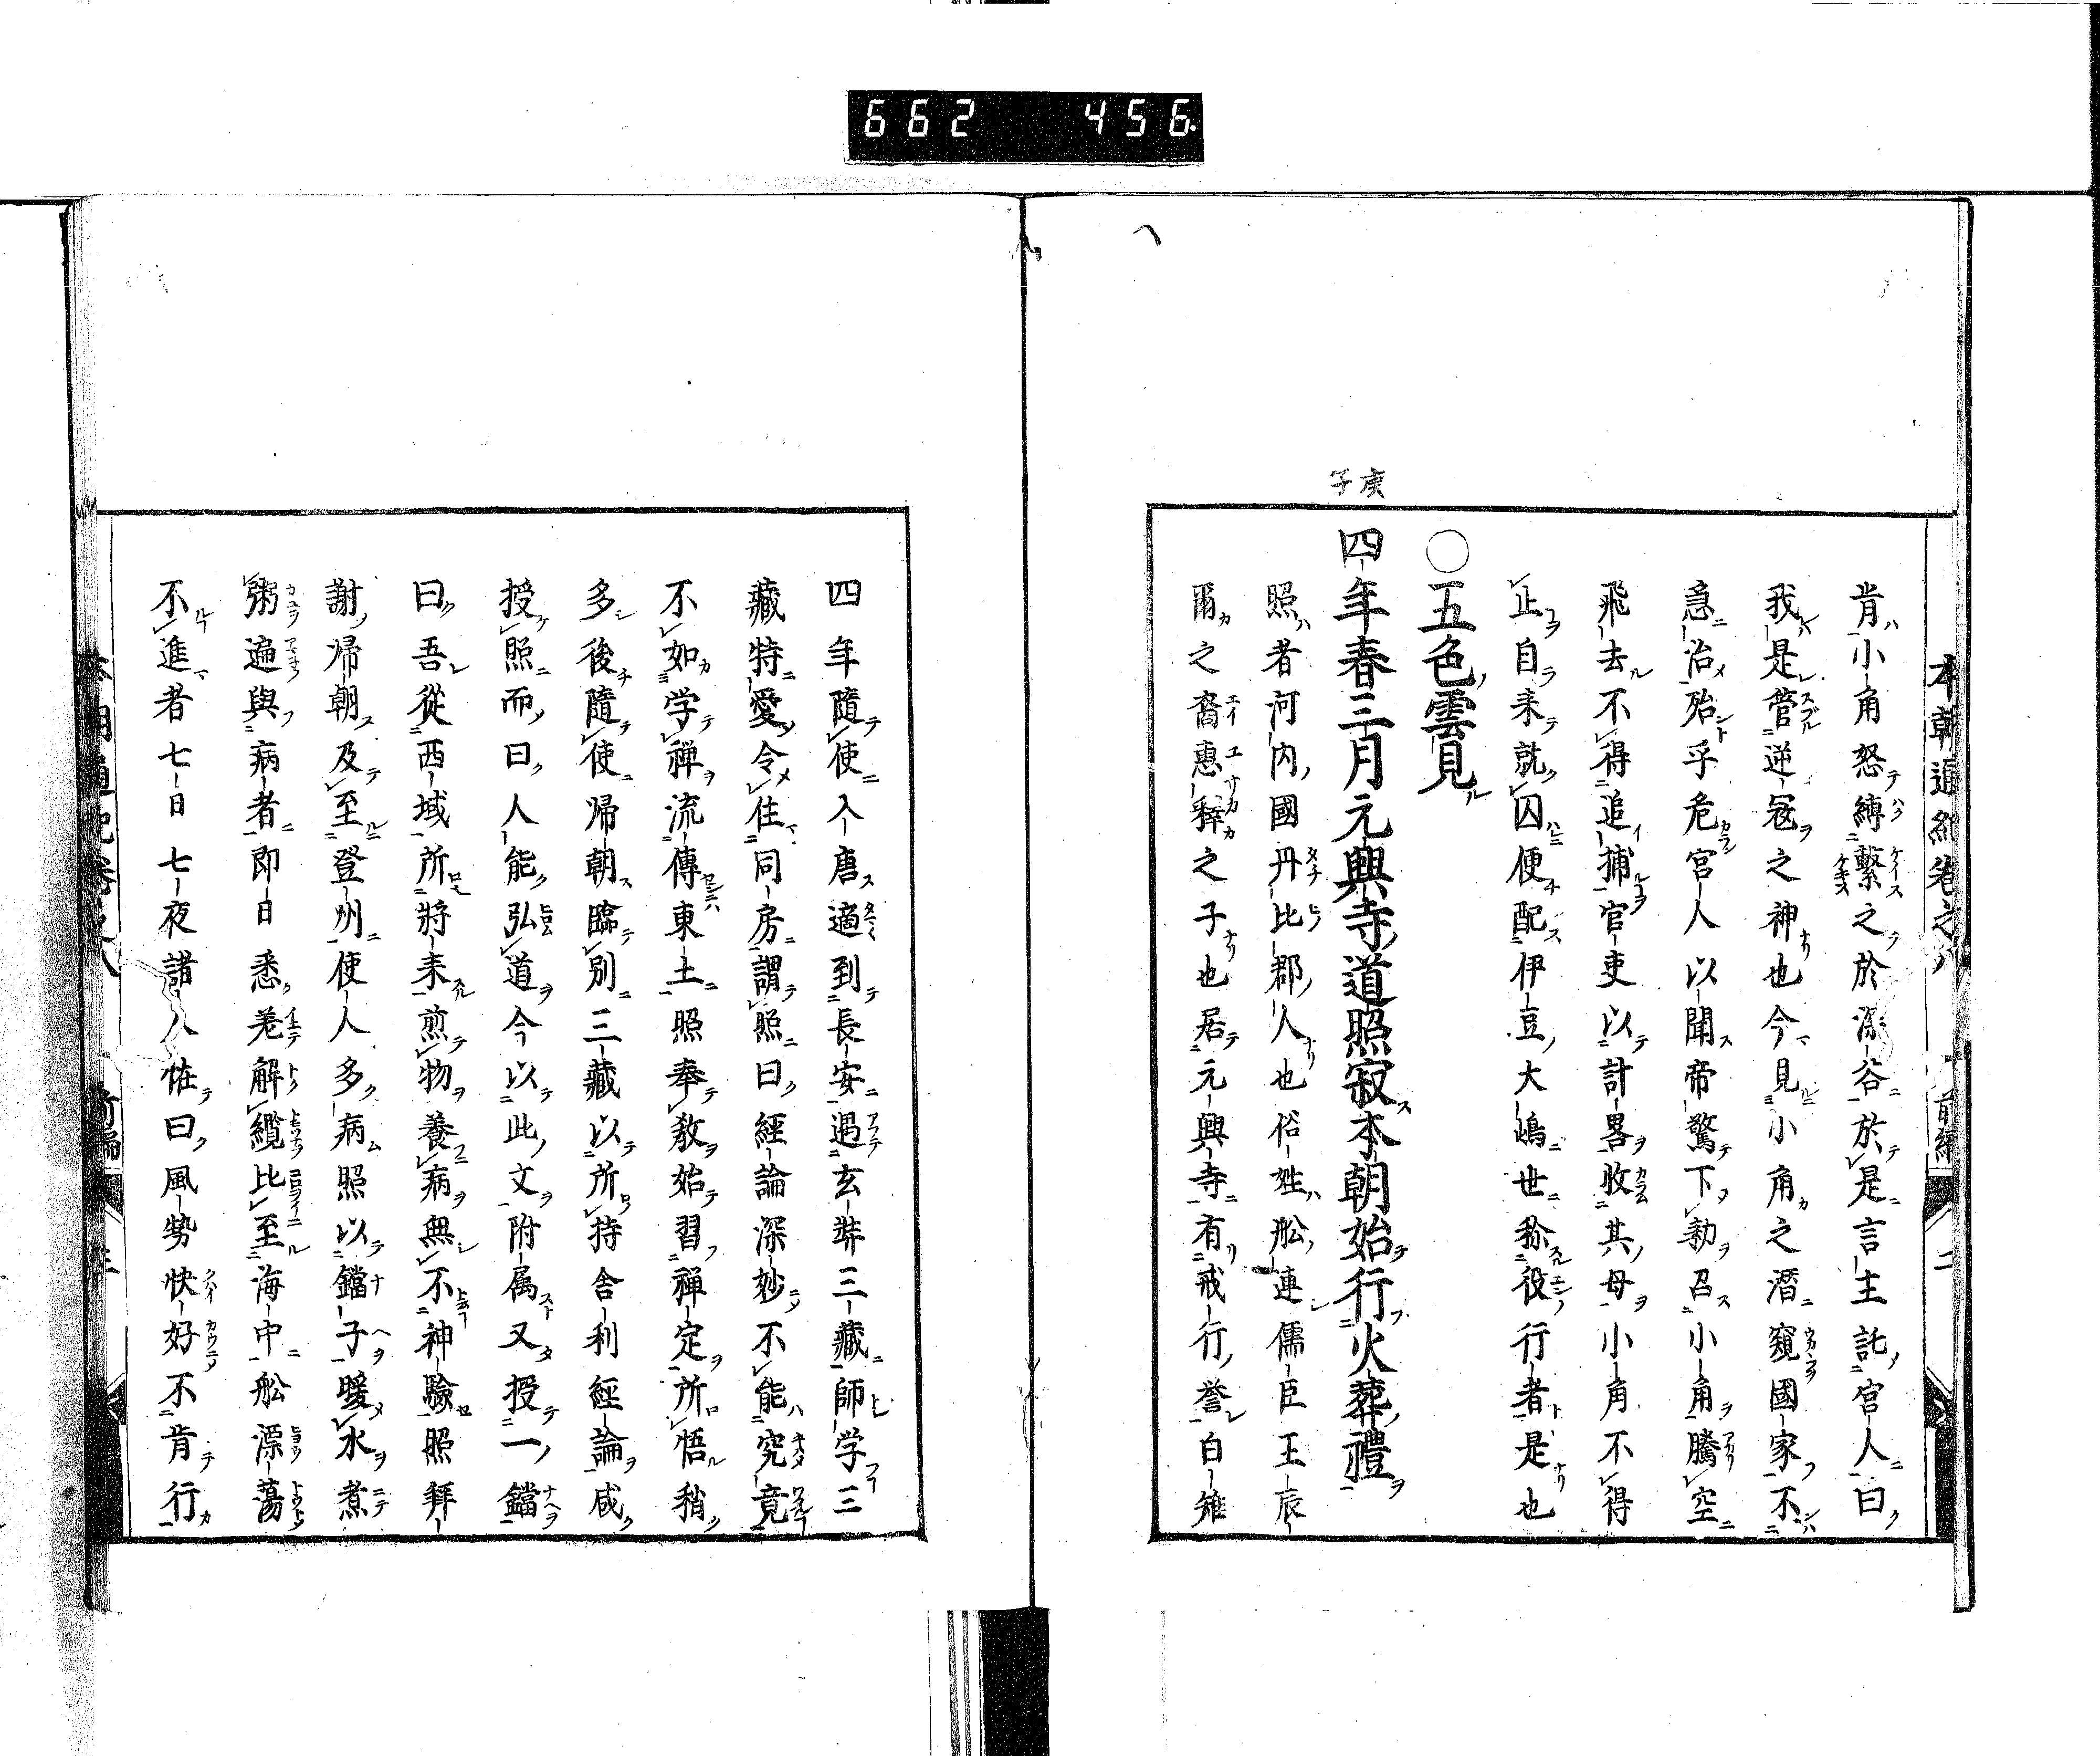 662 456
本朝通紀卷之八 前編 二
肯小角怒縛繫之於深谷於是言主託宮人曰
我是管逆冦之神也今見小角之潛窺國家不
急治殆乎危宮人以聞帝驚下勅召小角騰空
飛去不得追捕官吏以計畧收其母小角不得
止自来就囚便配伊豆大嶋世称役行者是也
〇五色雲見
庚子
四年春三月元興寺道照寂本朝始行火葬禮
照者河内國丹比郡人也俗姓舩連儒臣王辰
爾之裔惠釋之子也居元興寺有戒行誉白雉
四年隨使入唐適到長安遇玄奘三藏師学三
藏特愛令住同房謂照曰經論深妙不能究竟
不如学禅流傳東土照奉教始習禅定所悟稍
多後隨使帰朝臨別三藏以所持舎利經論咸
授照而曰人能弘道今以此文附属又授一鐺
曰吾從西域所將来煎物養病無不神驗照拜
謝帰朝及至登州使人多病照以鐺子暖水煮
粥遍與病者即日悉差解纜比至海中舩漂蕩
不進者七日七夜諸人恠曰風勢快好不肯行
本朝通紀卷之八 前編 三